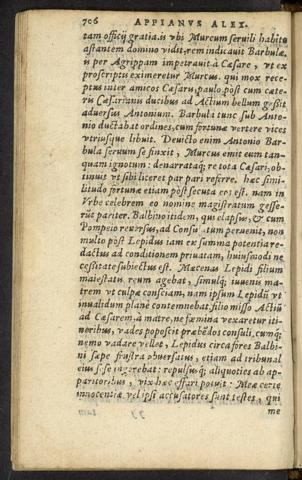 706 APPIANVS ALEX.
tam officij gratia. is vbi Murcum seruili habitu
astantem domino vidit, rem indicauit Barbulæ,
is per Agrippam impetrauit à Cæsare, vt ex
proscriptis eximeretur Murcus. qui mox rece
ptus inter amicos Cæsaris, paulo pòst cum cæte
ris Cæsarianis ducibus ad Actium bellum gessit
aduersus Antonium. Barbula tunc sub Anto-
nio ductabat ordines, cum fortunæ vertere vices
vtriusque libuit. Deuicto enim Antonio Bar-
bula seruum se finxit, Murcus emit eum tan-
quam ignotum: denarrataq; re tota Cæsari, ob-
tinuit vt sibi liceret par pari referre. hæc simi-
litudo fortunæ etiam pòst secuta eos est. nam in
Vrbe celebrem eo nomine magistratum gesse-
rũt pariter. Balbino itidem, qui elapsus, & cum
Pompeio reuersus, ad Consulatum peruenit, non
multo pòst Lepidus iam ex summa potentia re-
dactus ad conditionem priuatam, huiusmodi ne
cessitate subiectus est. Mæcenas Lepidi filium
maiestatis reum agebat, simulq; iuuenis ma-
trem vt culpæ consciam, nam ipsum Lepidũ vt
inualidum planè contemnebat. filio misso Actiũ
ad Cæsarem, à matre, ne fæmina vexaretur iti-
neribus, vades poposcit præbẽdos consuli. cumq;
nemo vadare vellet, Lepidus circa fores Balbi-
ni sæpe frustra obuersatus, etiam ad tribunal
eius sese ingerebat: repulsusq; aliquoties ab ap-
paritoribus, vix hæc effari potuit: Meæ certe
innocentiæ vel ipsi accusatores sunt testes, qui
me